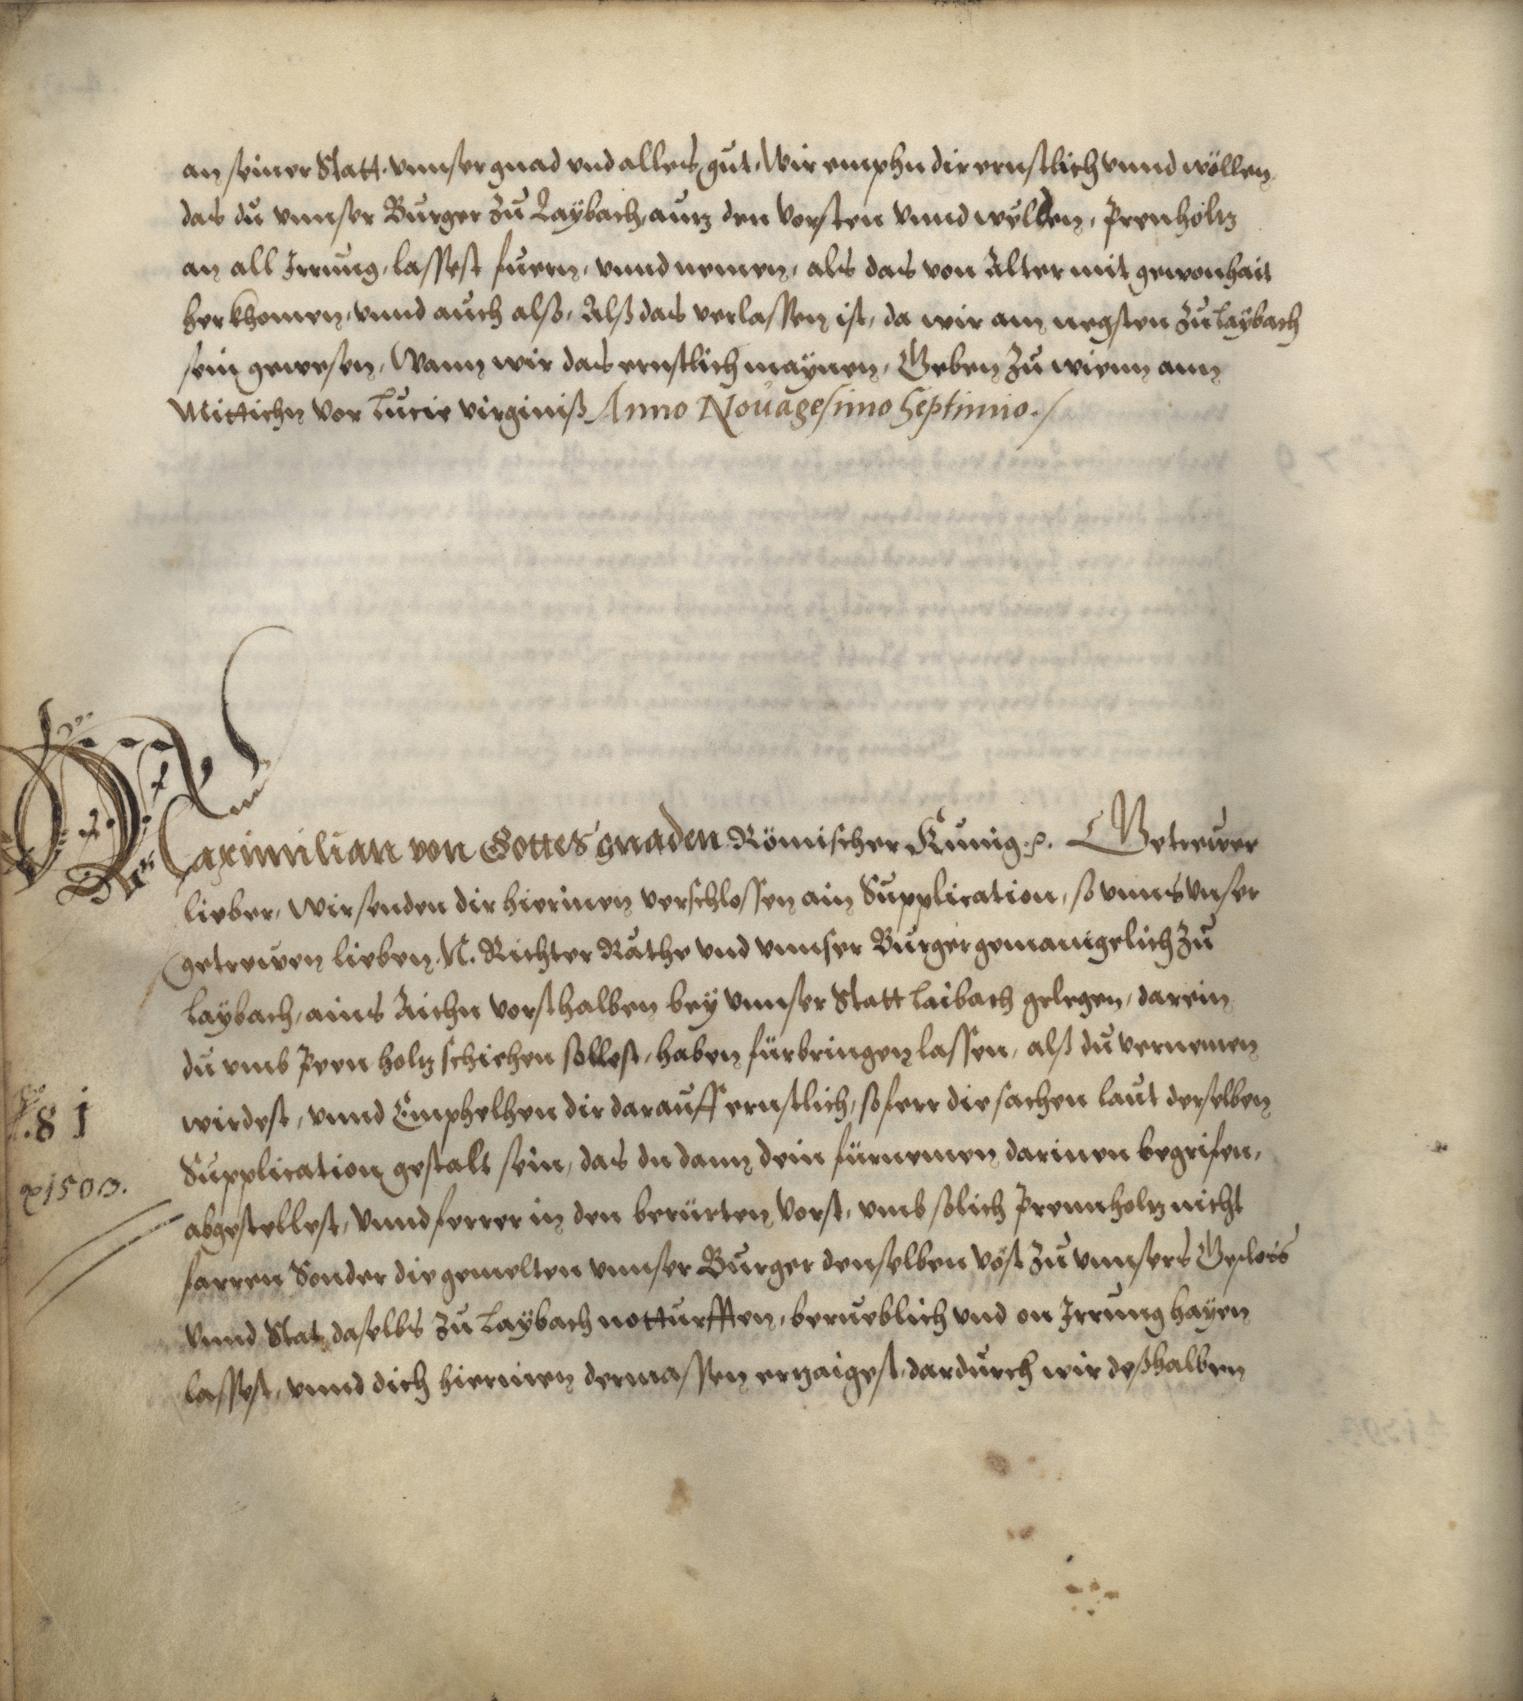 an seiner Statt, vnnser gnad vnd alles gut, Wir emphn dir ernstlich vnnd wöllen
das du vnnser Burger zu Laÿbach, aus den Vorsten vnnd welden, Prenholtz
an all Irrung, lassest fuern, vnnd nemen, als das von Alter mit gewonhait
her khomen, vnnd auch alß, Alß das verlassen ist, da wir am negsten zu Laÿbach
sein gewesen, Wann wir das ernstlich maÿnen, Geben zu wienn ann
Mittichn vor Lucie virginiß Anno Nouagesimo Septimio./
Maximilian von Gottes gnaden Römischer Kunig. Getrewer
lieber, Wir senden dir hierinen verschlossen ain Supplication, so vnns vnser
getrewen lieben N. Richter Räthe vnd vnnser Burger gemainigelich zu
Laÿbach, ains Aichn vorst halben beÿ vnnser Statt Laibach gelegen, darein
du vmb Pren holtz schickhen sollest, haben fürbringen lassen, alß du vernemen
wirdest, vnnd Emphelhen dir darauff ernstlich, so ferr die sachen laut derselben
Supplication gestalt sein, das du dann dein fürnemen darinen begrifen,
abgestellest, vnnd ferrer in den berürten Vorst, vmb solich Prennholtz nicht
farren Sonder die gemelten vnnser Burger denselben vost zu vnnsers
vnnd Stat daselbs zu Laÿbach notturfften, berueblich vnd on Irrung haÿen
lassest, vnnd dich hierinen dermassen ertzaigest, dardurch wir deßhalben
81
1503.